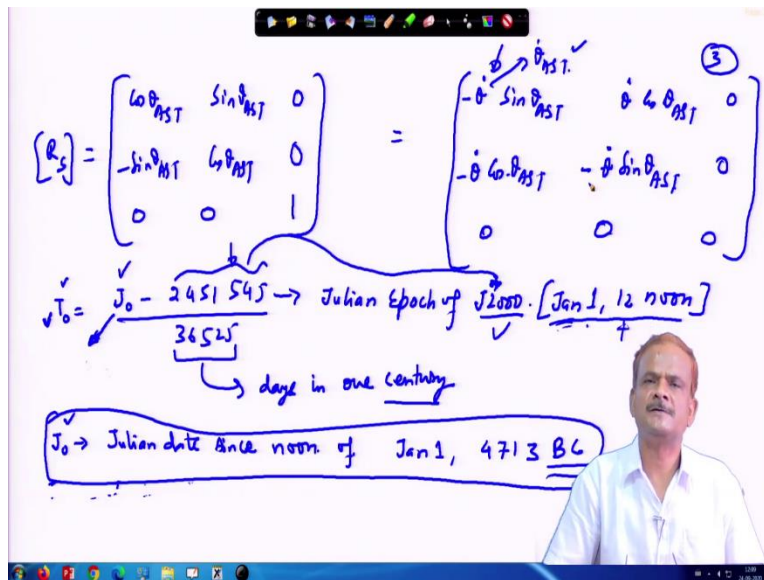 ③
θ̇_AST ✓
[R_S] = [ cos θ_AST sin θ_AST 0 = [ -θ̇ sin θ_AST θ̇ cos θ_AST 0
-sin θ_AST cos θ_AST 0 -θ̇ cos θ_AST -θ̇ sin θ_AST 0
0 0 1 ] 0 0 0 ]
T₀ = J₀ - 2451545 → Julian Epoch of J2000. [Jan 1, 12 noon]
36525
→ days in one century
J₀ → Julian date since noon of Jan 1, 4713 BC
12:09